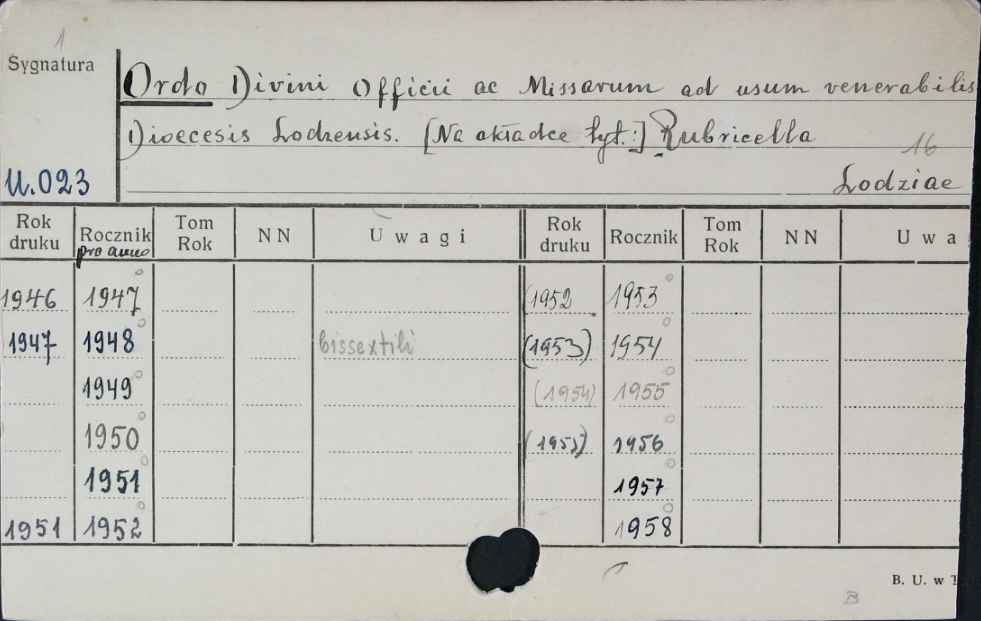 1
Sygnatura
Ordo Divini Officii ac Missarum ad usum venerabilis
Dioecesis Lodzensis. [Na okładce tyt.:] Rubricella
16
U.023 Lodziae
Rok druku Rocznik Tom Rok NN Uwagi Rok druku Rocznik Tom Rok NN Uwa
pro anno
1946 1947 (1952 1953
1947 1948 bissextili (1953) 1954
1949 (1954) 1955
1950 (1955) 1956
1951 1957
1951 1952 1958
B. U. w
B